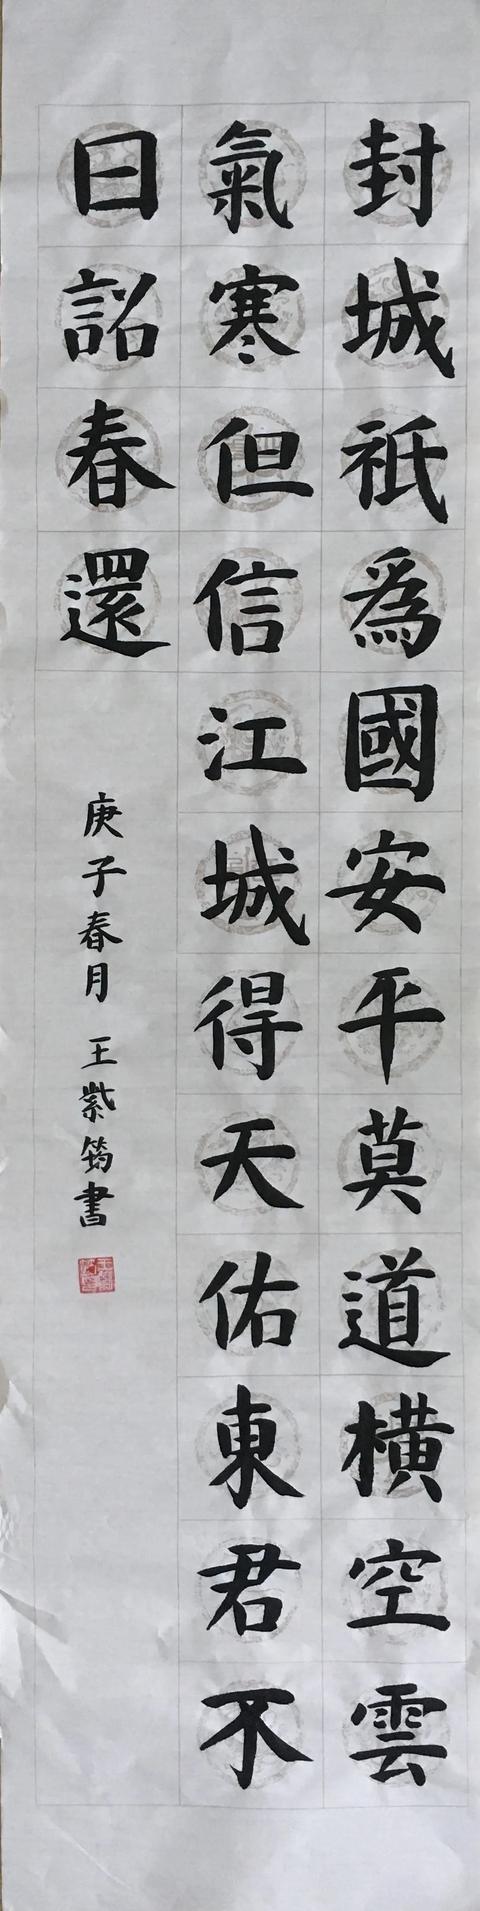 封城祇為國安平莫道橫空雲
氣寒但信江城得天佑東君不
日詔春還
庚子春月 王紫筠書